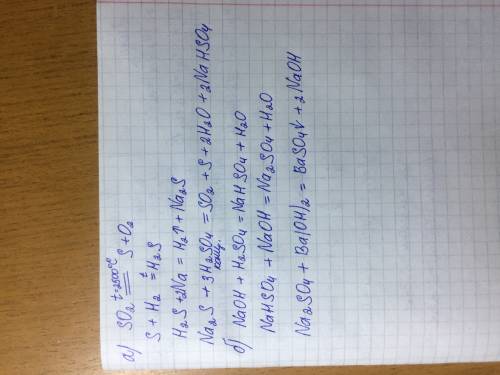 а) SO₂ t=2500°C = S + O₂
S + H₂ t = H₂S
H₂S + 2Na = H₂↑ + Na₂S
Na₂S + 3H₂SO₄ конц. = SO₂ + S + 2H₂O + 2NaHSO₄
б) NaOH + H₂SO₄ = NaHSO₄ + H₂O
NaHSO₄ + NaOH = Na₂SO₄ + H₂O
Na₂SO₄ + Ba(OH)₂ = BaSO₄↓ + 2NaOH